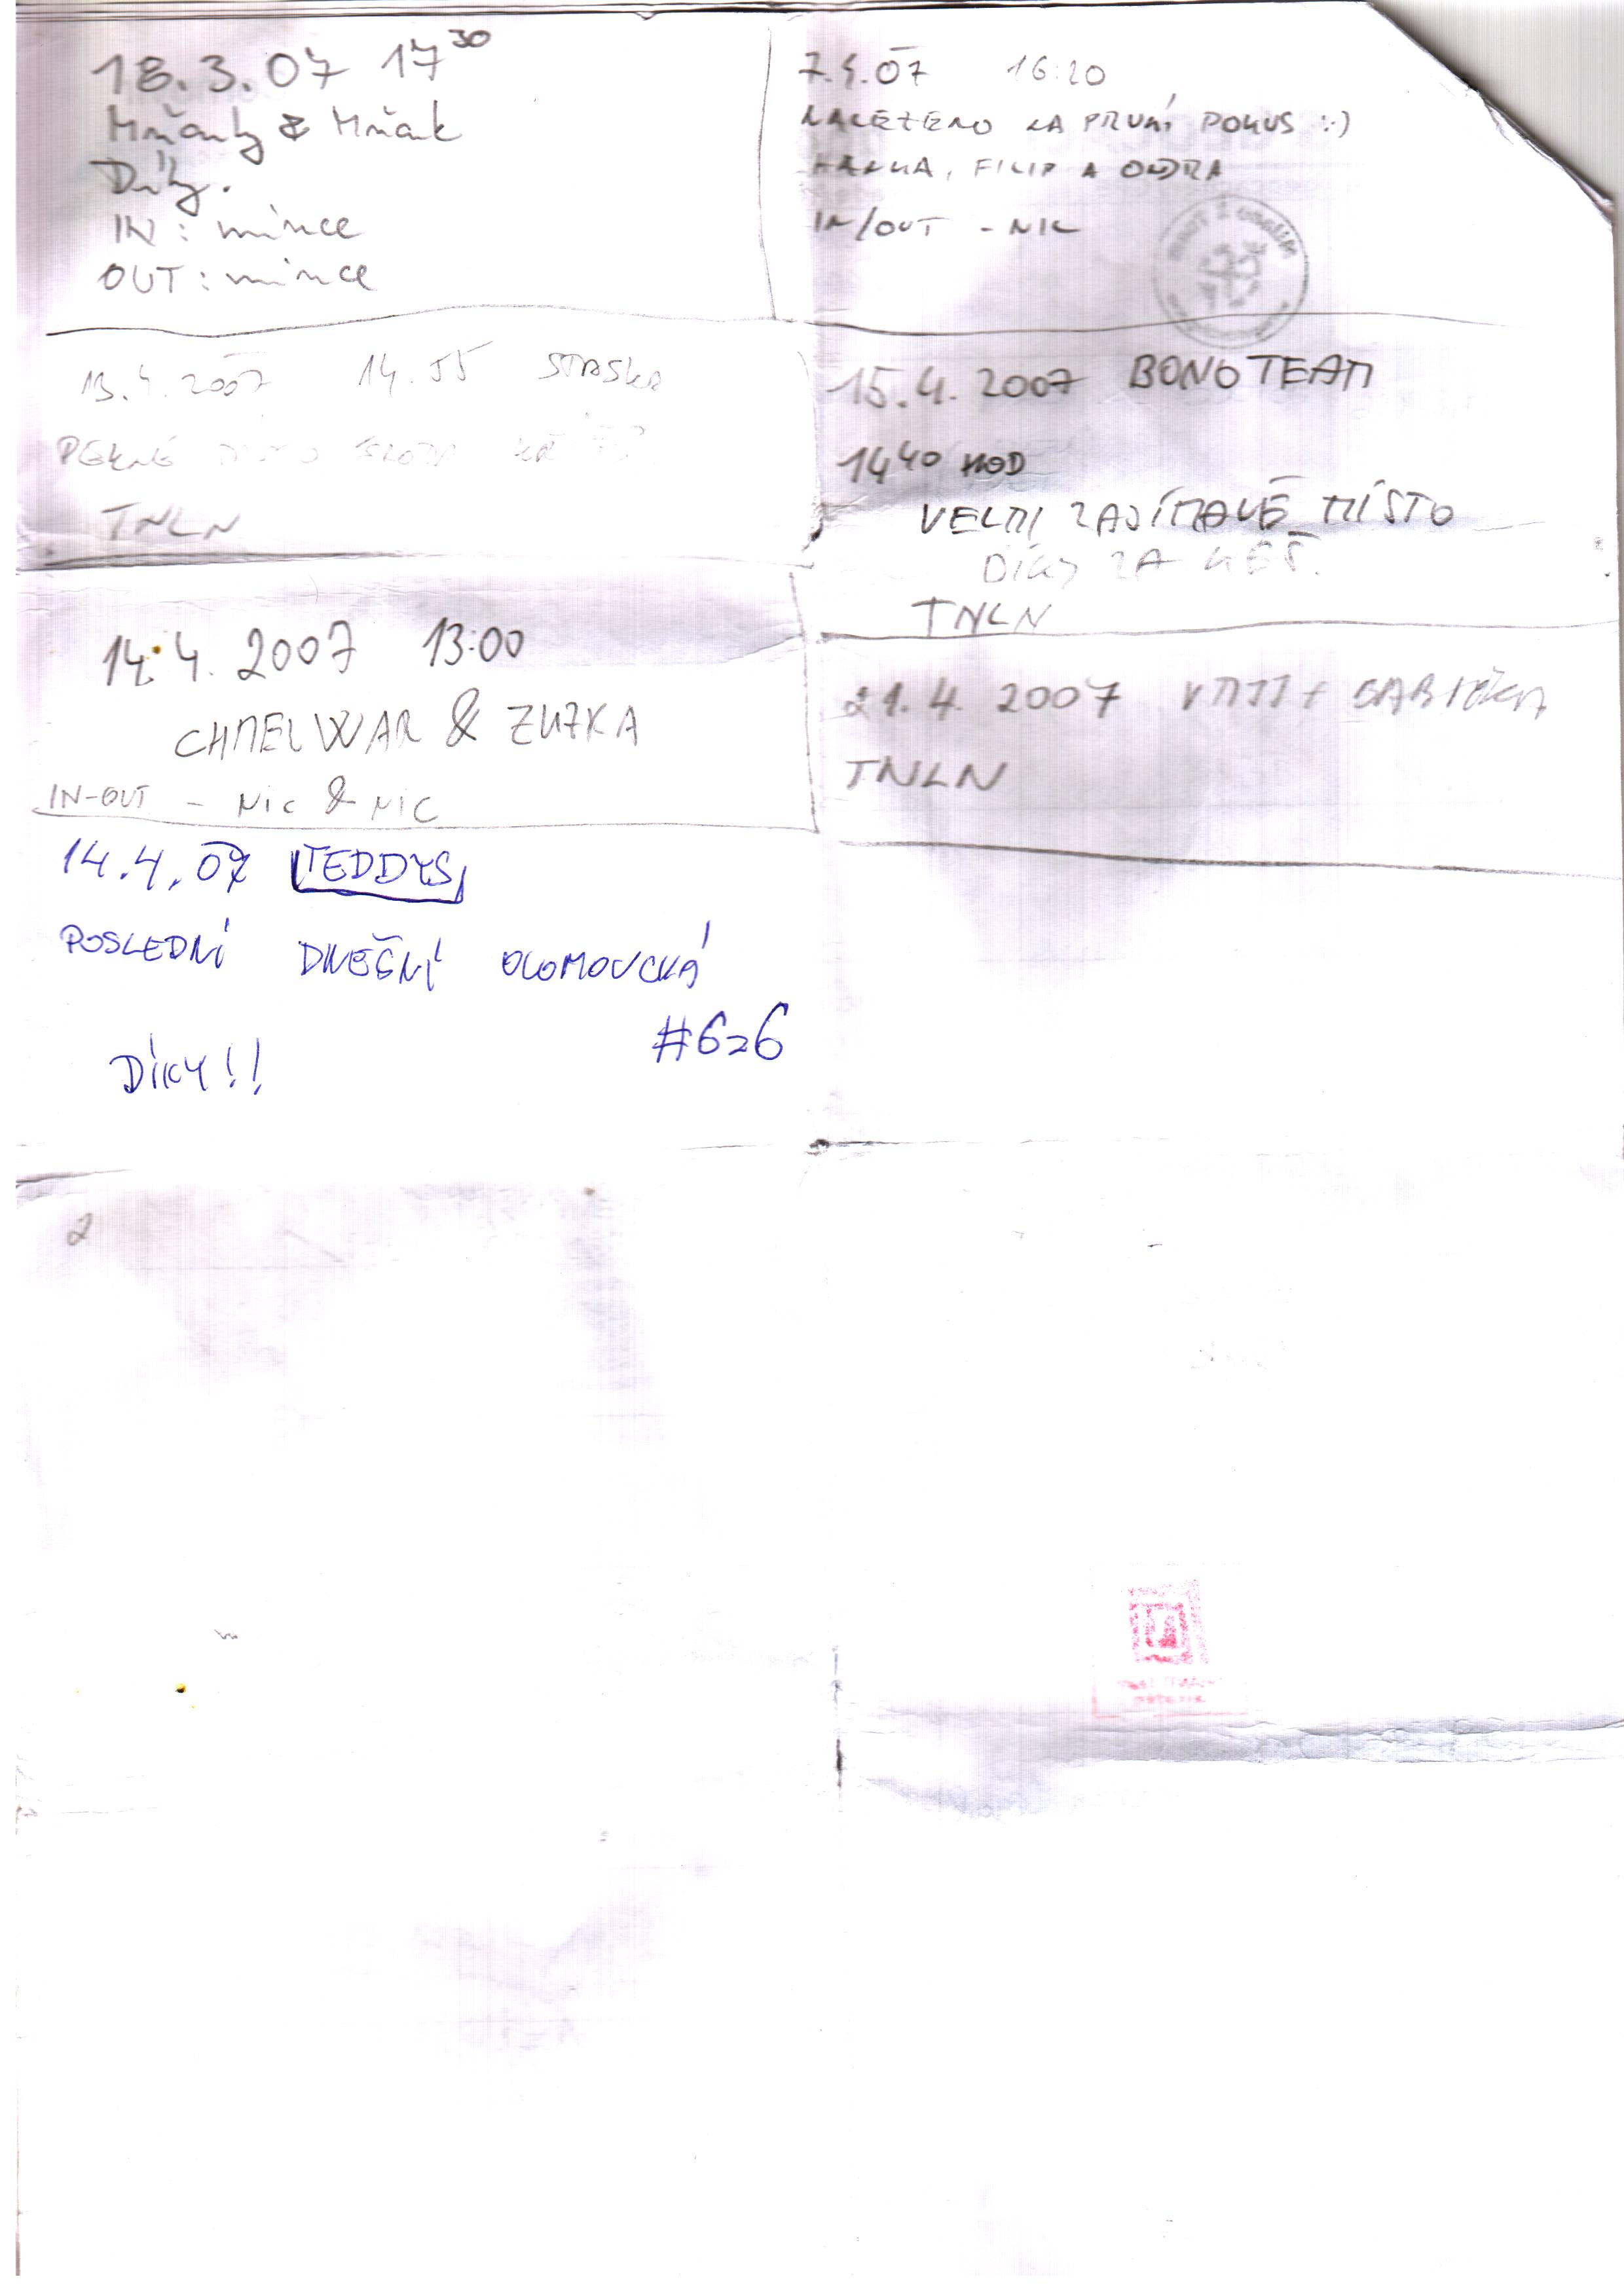 18.3.07 17 30
Mňouky & Mňouk
Díky.
IN: mince
OUT: mince
7.4.07 16:20
NALEZENO NA PRVNÍ POKUS :-)
HANKA, FILIP A ONDRA
IN/OUT - NIC
13.4.2007 14.55
PĚKNÉ
TNLN
15.4.2007 BONO TEAM
14 40 HOD
VELMI ZAJÍMAVÉ MÍSTO
DÍKY ZA KEŠ.
TNLN
14.4.2007 13:00
CHMELWAR & ZUZKA
IN-OUT - NIC & NIC
21.4.2007
TNLN
14.4.07 TEDDYS
POSLEDNÍ DNEŠNÍ OLOMOUCKÁ
#626
DÍKY!!
2